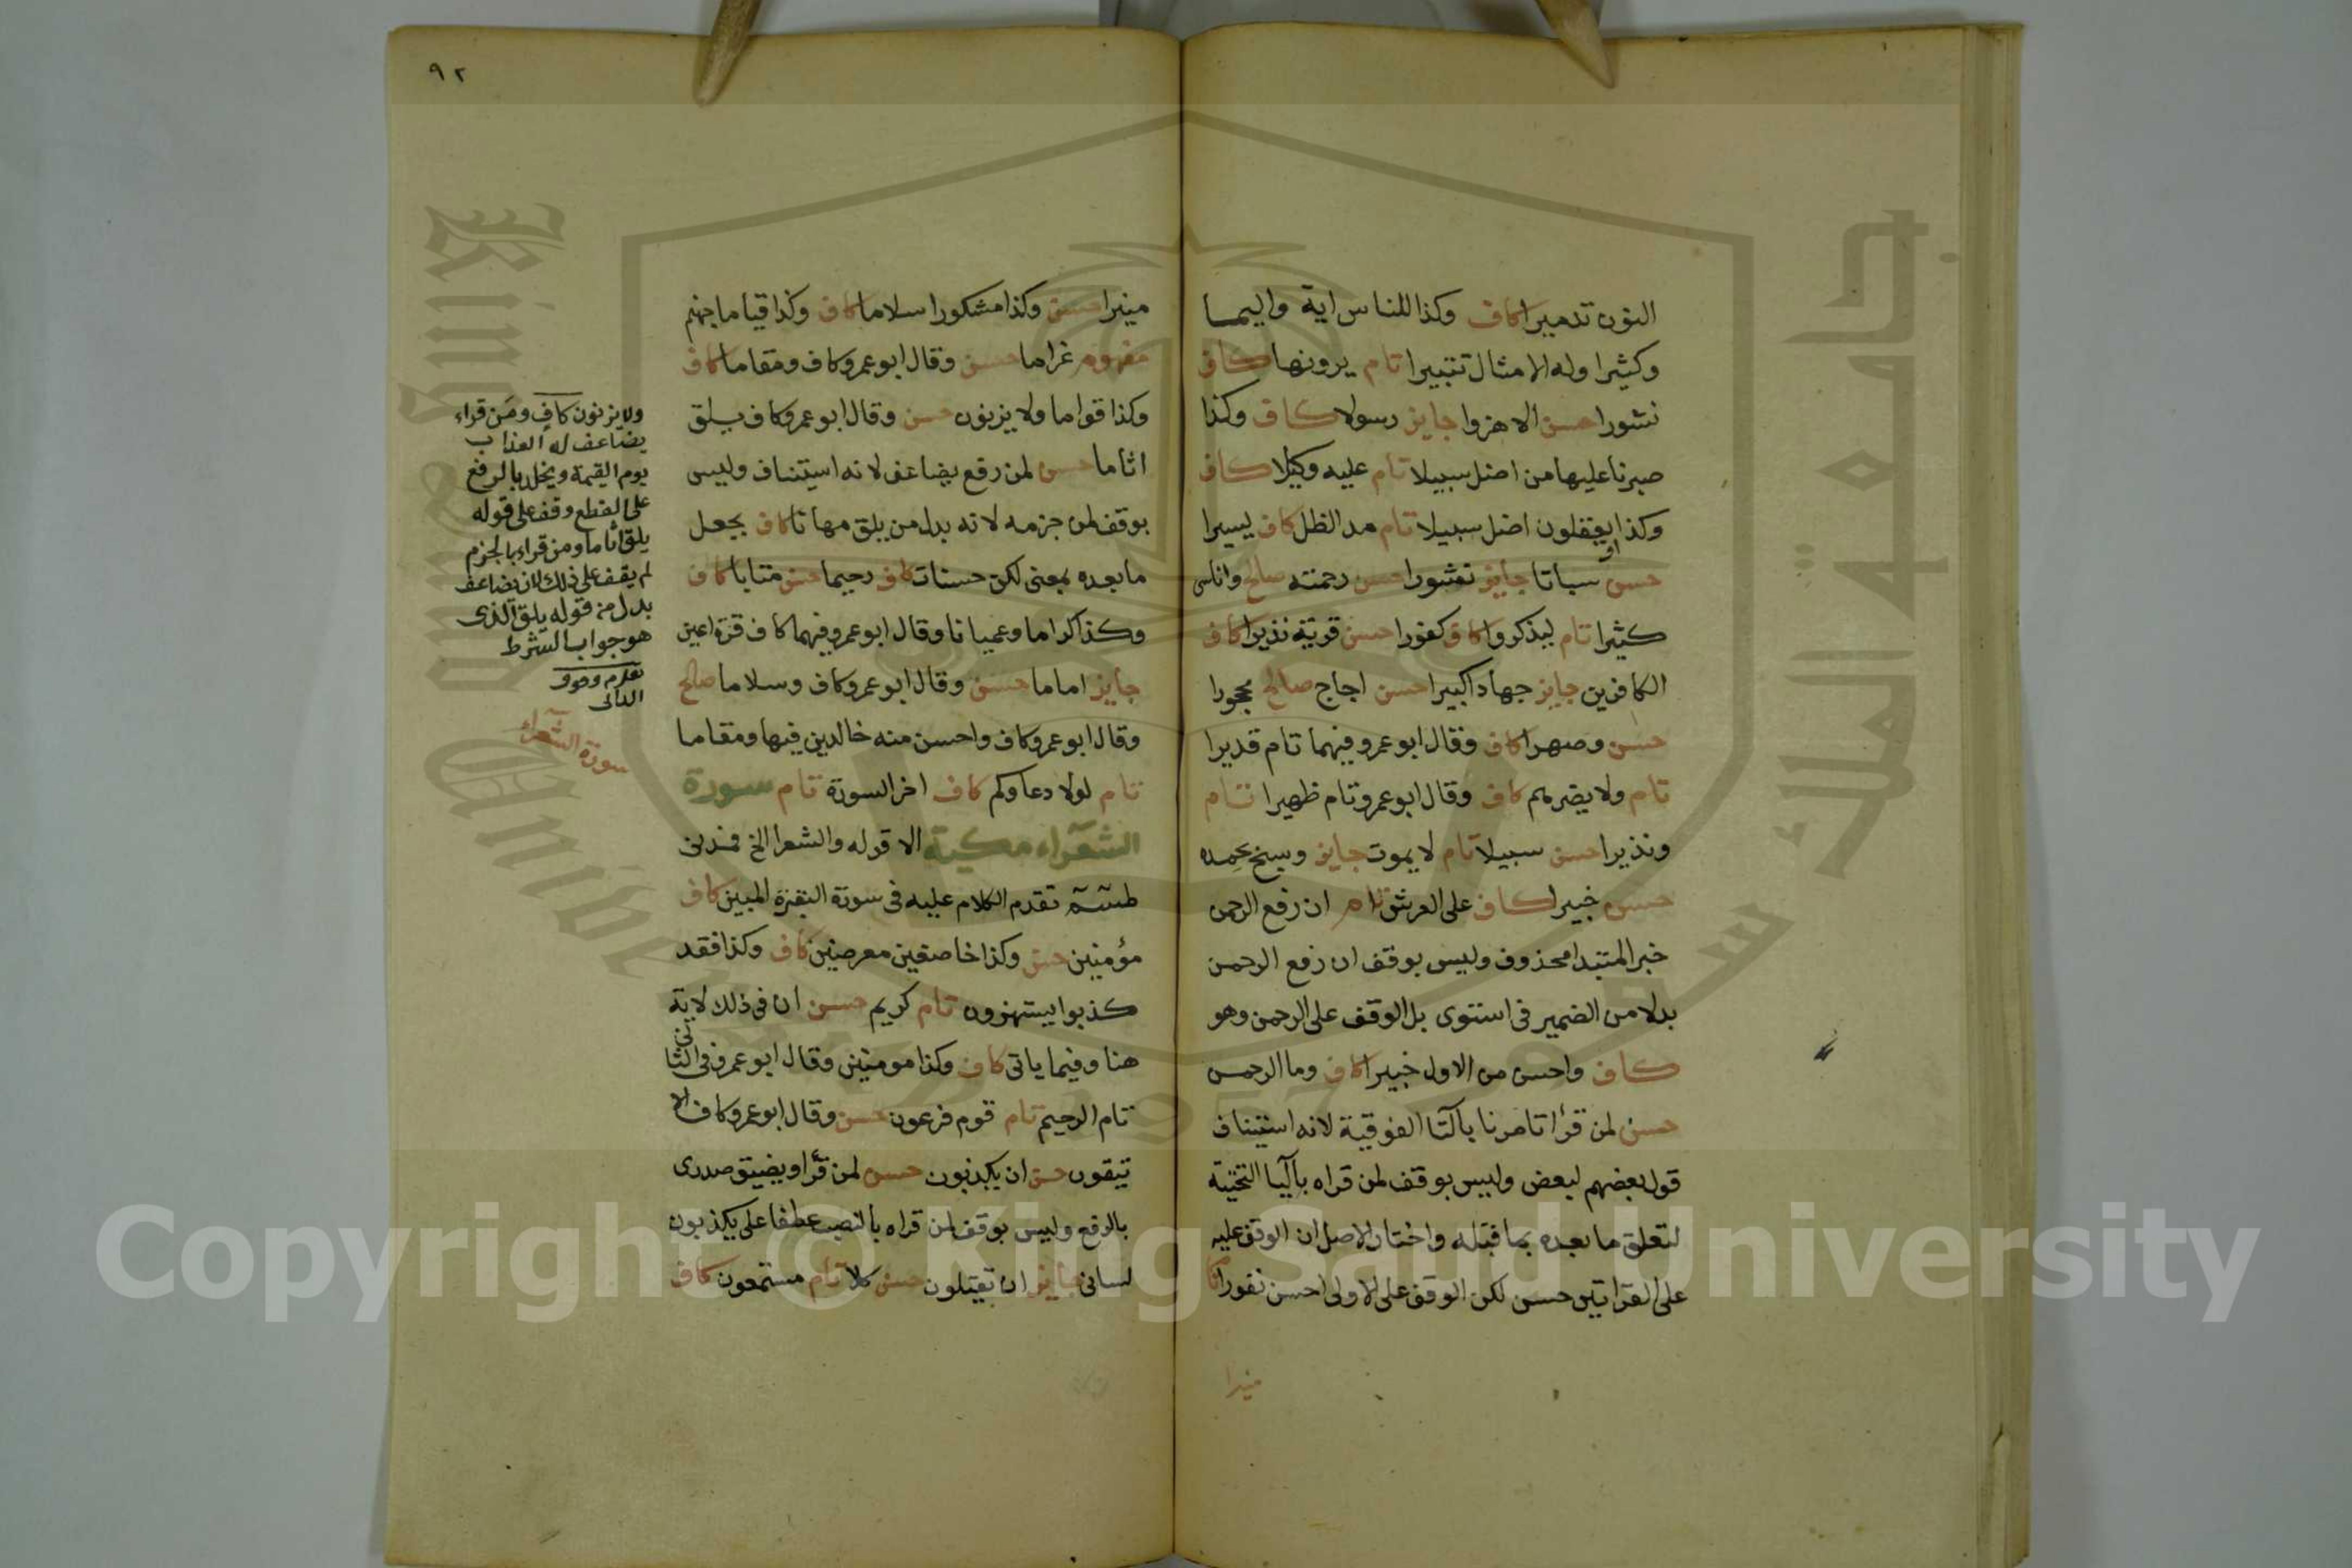 النون تدميرا كاف وكذا للناس اية واليما
وكثيرا وله الامثال تتبيرا تام يرونها كاف
نشورا حسن الا هزوا جايز رسولا كاف وكذا
صبرنا عليها من اضل سبيلا تام عليه وكيلا كاف
وكذا او يعقلون اضل سبيلا تام مد الظل كاف يسيرا
حسن سباتا جايز نشورا حسن رحمته صالح واناسى
كثيرا تام ليذكروا كاف كفورا حسن قرية نذيرا كاف
الكافرين جايز جهادا كبيرا حسن اجاج صالح محجورا
حسن وصهرا كاف وقال ابو عمرو فيهما تام قديرا
تام ولا يضرهم كاف وقال ابو عمرو تام ظهيرا تام
ونذيرا حسن سبيلا تام لا يموت جايز وسبح بحمده
حسن خبيرا كاف على العرش تام ان رفع الرحمن
خبر المبتدا محذوف وليس بوقف ان رفع الرحمن
بدلا من الضمير فى استوى بل الوقف على الرحمن وهو
كاف واحسن من الاول خبيرا كاف وما الرحمن
حسن لمن قرأ تامرنا بالتا الفوقية لانه استيناف
قول بعضهم لبعض وليس بوقف لمن قراه باليا التحتية
لتعلق ما بعده بما قبله واختار الاصل ان الوقف عليه
على القراتين حسن لكن الوقف على الاولى احسن نفورا كا
منيرا
٩٢
منيرا حسن وكذا مشكورا سلاما كاف وكذا قياما جهنم
مفهوم غراما حسن وقال ابو عمرو كاف ومقاما كاف
وكذا قواما ولا يزنون حسن وقال ابو عمرو كاف يلق
اثاما حسن لمن رفع يضاعف لانه استيناف وليس
بوقف لمن جزمه لانه بدل من يلق مهانا كاف بجعل
ما بعده بمعنى لكن حسنات كاف رحيما حسن متابا كاف
وكذا كراما وعميانا وقال ابو عمرو فيهما كاف قرة اعين
جايز اماما حسن وقال ابو عمرو كاف وسلاما صالح
وقال ابو عمرو كاف واحسن منه خالدين فيها ومقاما
تام لولا دعاوكم كاف اخر السورة تام سورة
الشعراء مكية الا قوله والشعرا الخ فمدنى
طسم تقدم الكلام عليه فى سورة البقرة المبين كاف
مؤمنين حسن وكذا خاضعين معرضين كاف وكذا فقد
كذبوا يستهزون تام كريم حسن ان فى ذلك لاية
هنا وفيما ياتى كاف وكذا مومنين وقال ابو عمرو فى الثانى
تام الرحيم تام قوم فرعون حسن وقال ابو عمرو كاف الا
تيقون حسن ان يكذبون حسن لمن قرأ ويضيق صدرى
بالرفع وليس بوقف لمن قراه بالنصب عطفا على يكذبون
لسانى جايز ان يقتلون حسن كلا تام مستمعون كاف
ولا يزنون كاف ومن قراء
يضاعف له العذاب
يوم القيمة ويخلد بالرفع
على القطع وقف على قوله
يلق أثاما ومن قراء بالجزم
لم يقف على ذلك لان يضاعف
بدل من قوله يلق الذى
هو جواب الشرط
الدانى
سورة الشعراء
Copyright © King Saud University
جامعة الملك سعود
King Saud University
1957